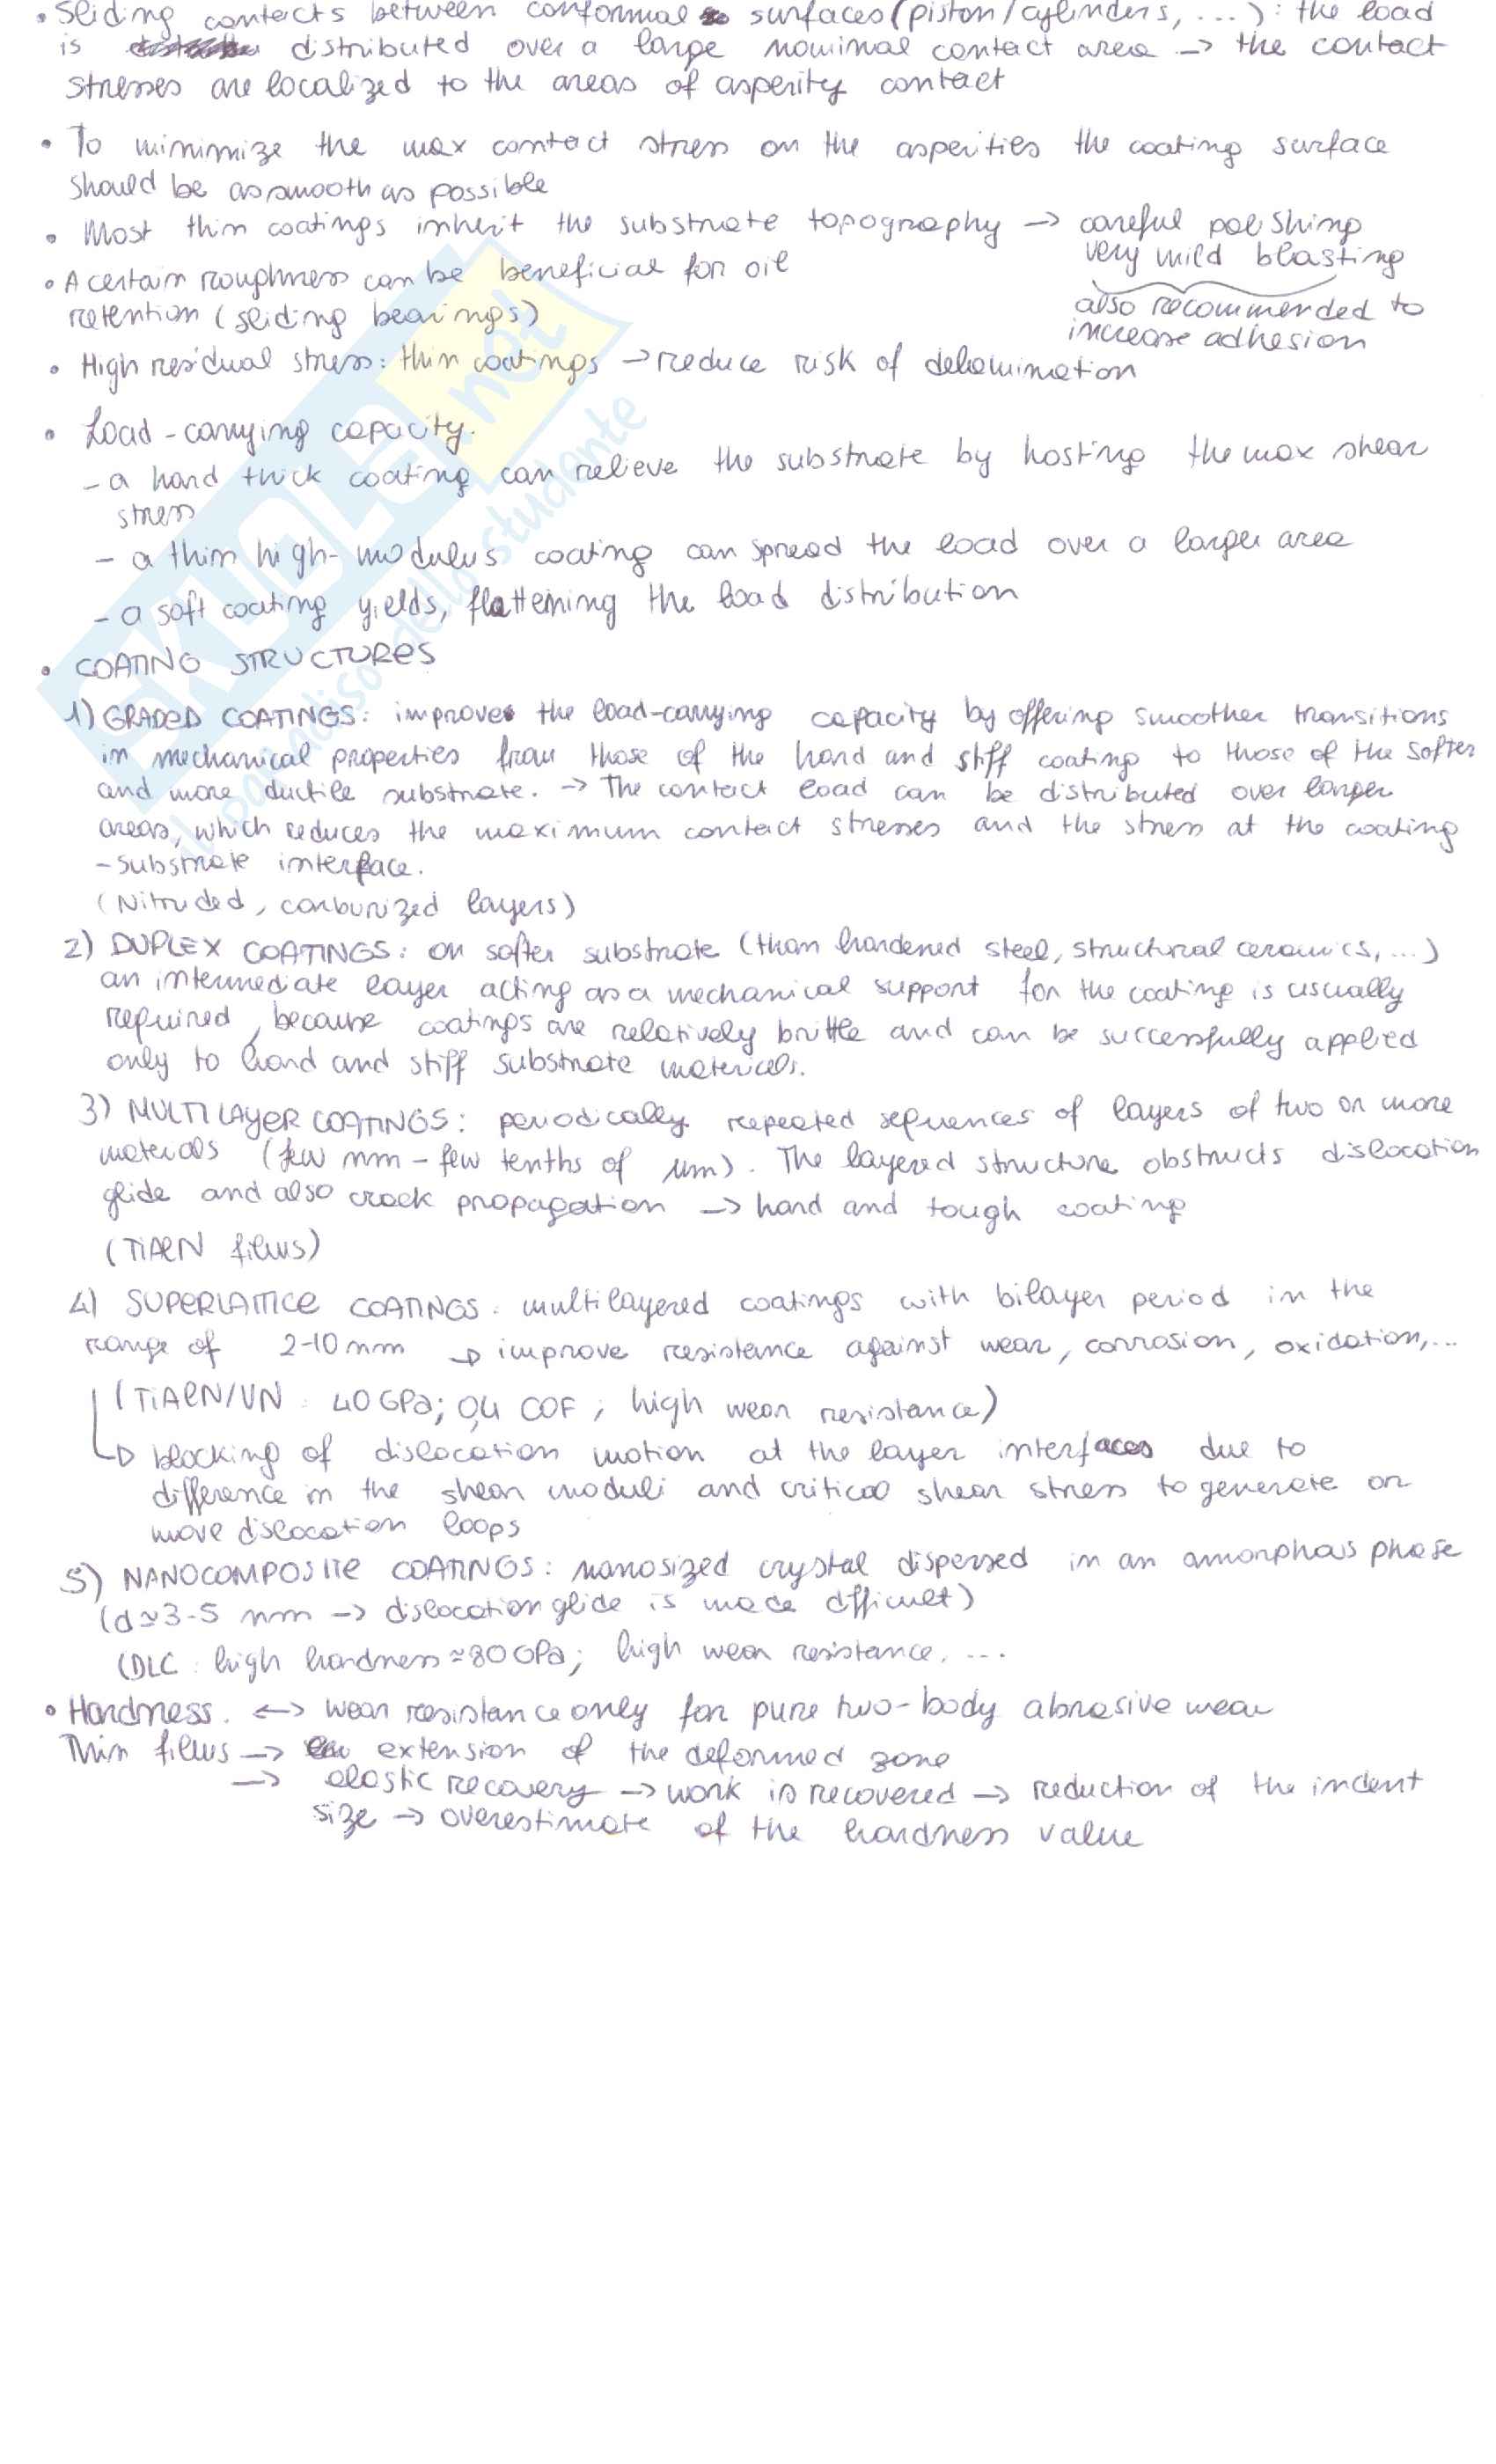 • Sliding contacts between conformal surfaces (piston/cylinders, ...): the load
is distributed over a large nominal contact area → the contact
stresses are localized to the areas of asperity contact
• To minimize the max contact stress on the asperities the coating surface
should be as smooth as possible
• Most thin coatings inherit the substrate topography → careful polishing
very mild blasting
also recommended to
increase adhesion
• A certain roughness can be beneficial for oil
retention (sliding bearings)
• High residual stress: thin coatings → reduce risk of delamination
• Load-carrying capacity.
- a hard thick coating can relieve the substrate by hosting the max shear
stress
- a thin high-modulus coating can spread the load over a larger area
- a soft coating yields, flattening the load distribution
• COATING STRUCTURES
1) GRADED COATINGS: improves the load-carrying capacity by offering smoother transitions
in mechanical properties from those of the hard and stiff coating to those of the softer
and more ductile substrate. → The contact load can be distributed over larger
areas, which reduces the maximum contact stresses and the stress at the coating
-substrate interface.
(Nitruded, carburized layers)
2) DUPLEX COATINGS: on softer substrate (than hardened steel, structural ceramics, ...)
an intermediate layer acting as a mechanical support for the coating is usually
required, because coatings are relatively brittle and can be successfully applied
only to hard and stiff substrate materials.
3) MULTILAYER COATINGS: periodically repeated sequences of layers of two or more
materials (few nm - few tenths of μm). The layered structure obstructs dislocation
glide and also crack propagation → hard and tough coating
(TiAlN films)
4) SUPERLATTICE COATINGS: multilayered coatings with bilayer period in the
range of 2-10 nm → improve resistance against wear, corrosion, oxidation,...
(TiAlN/VN: 40 GPa; 0,4 COF; high wear resistance)
→ blocking of dislocation motion at the layer interfaces due to
difference in the shear moduli and critical shear stress to generate or
move dislocation loops
5) NANOCOMPOSITE COATINGS: nanosized crystal dispersed in an amorphous phase
(d≃3-5 nm → dislocation glide is made difficult)
(DLC: high hardness ≃80 GPa; high wear resistance, ...
• Hardness. ↔ wear resistance only for pure two-body abrasive wear
Thin films → extension of the deformed zone
→ elastic recovery → work is recovered → reduction of the indent
size → overestimate of the hardness value
SKUOLA.net
il paradiso dello studente